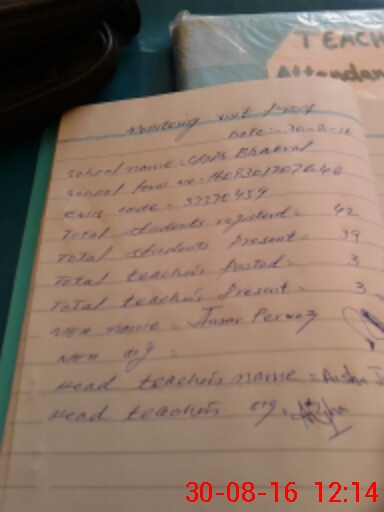 TEACH
Attendan
Monitoring visit Proof
Date:- 30-8-16
School name = GGPS Bhakral
School form no =
EMIS code = 37370459
Total students registered = 42
Total students Present = 39
Total teachers Posted = 3
Total teachers Present = 3
MEA name = Ansar Pervez
MEA sig =
Head teacher's name = Aisha I
Head teacher's sig. Aisha
30-08-16 12:14